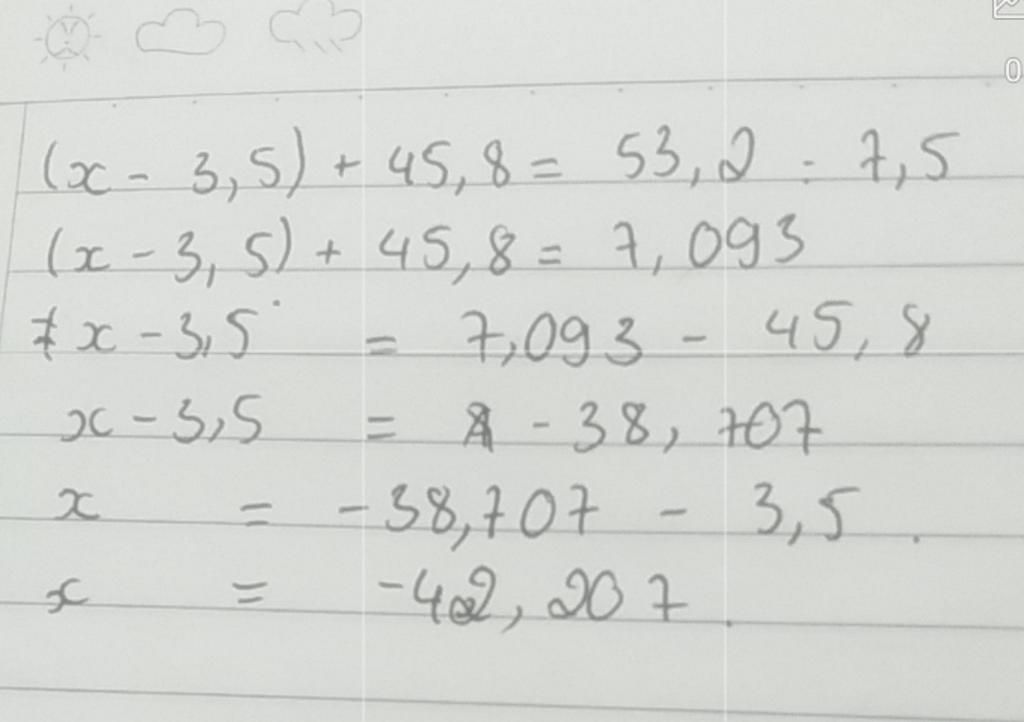 0
(x - 3,5) + 45,8 = 53,2 : 7,5
(x - 3,5) + 45,8 = 7,093
x - 3,5 = 7,093 - 45,8
x - 3,5 = - 38,707
x = -38,707 - 3,5.
x = -42,207.